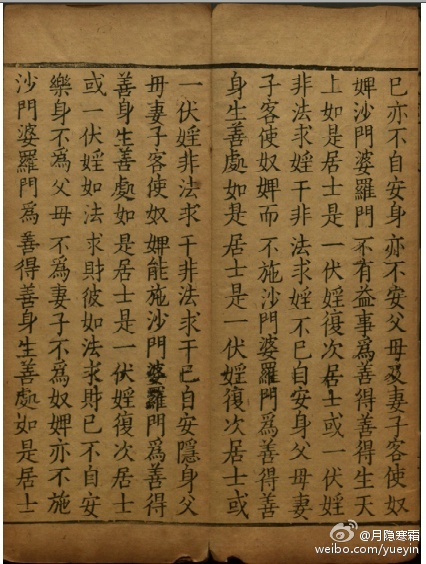 巳亦不自安身亦不安父母及妻子客使奴
婢沙門婆羅門不有益事為善得善得生天
上如是居士是一伏婬復次居士或一伏婬
非法求婬干非法求婬不巳自安身父母妻
子客使奴婢而不施沙門婆羅門為善得善
身生善處如是居士是一伏婬復次居士或
一伏婬非法求干非法求干巳自安隱身父
母妻子客使奴婢能施沙門婆羅門為善得
善身生善處如是居士是一伏婬復次居士
或一伏婬如法求財彼如法求財巳不自安
樂身不為父母不為妻子不為奴婢亦不施
沙門婆羅門為善得善身生善處如是居士
@月隐寒霜
weibo.com/yueyin